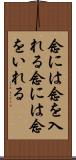 念には念を入
れる念には念
をいれる